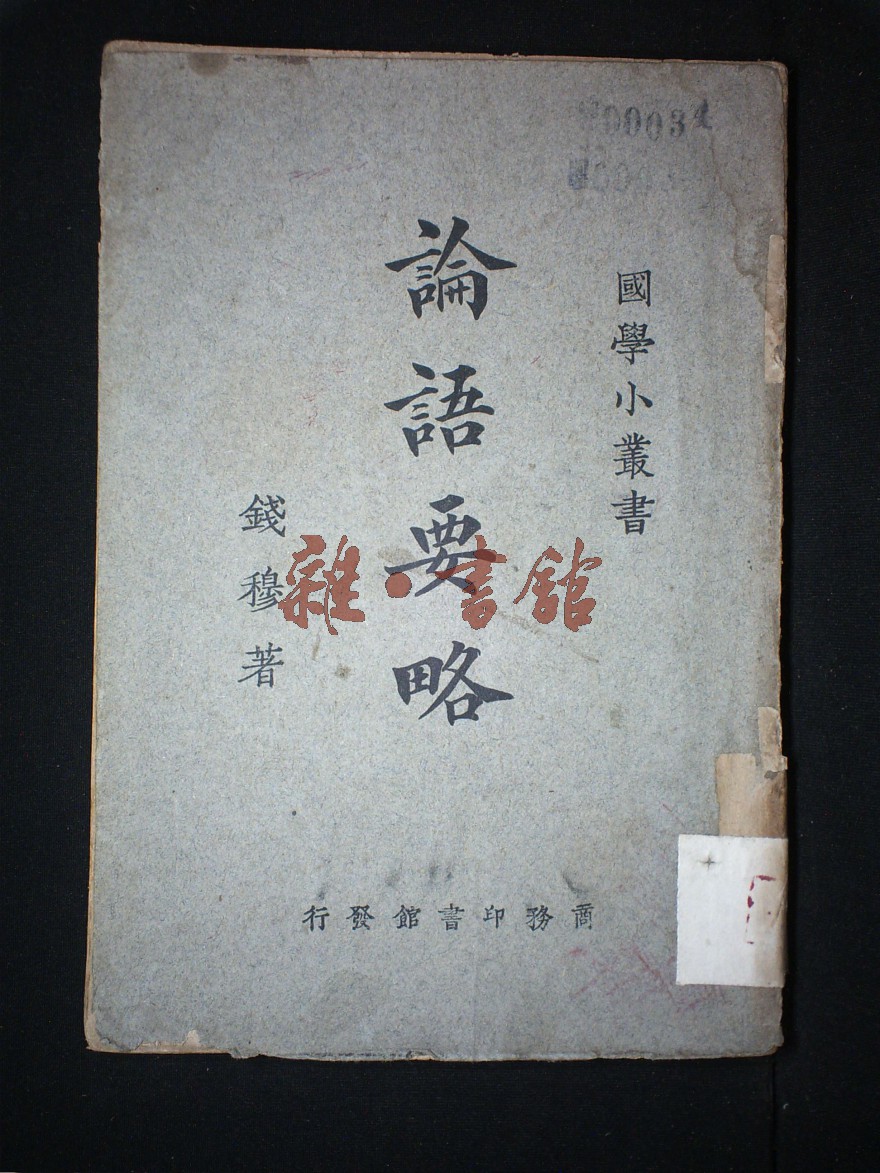 國學小叢書
論語要略
錢穆著
商務印書館發行
雜·書館